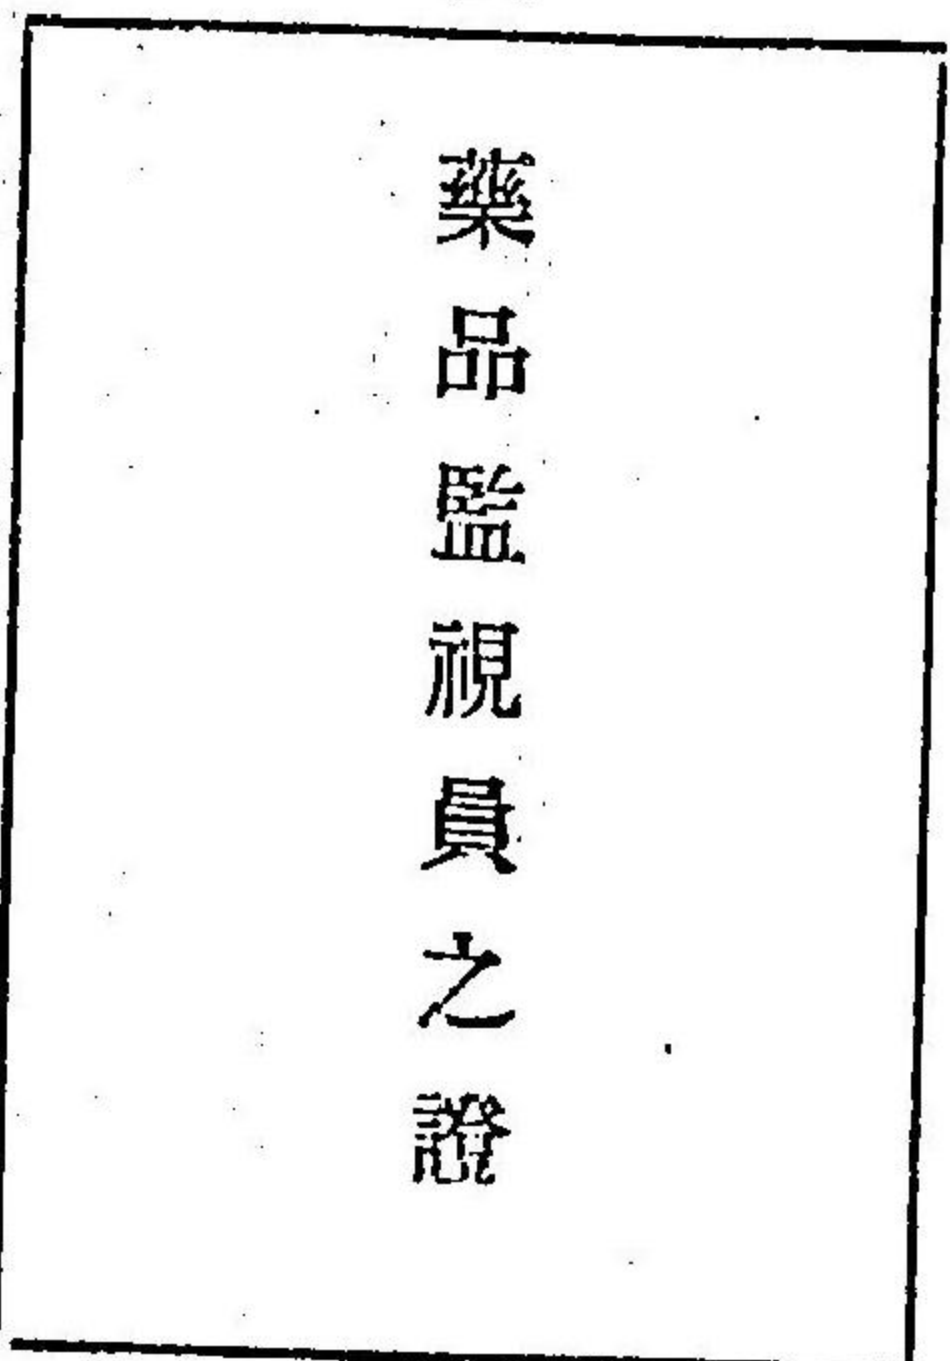 藥品監視員之證